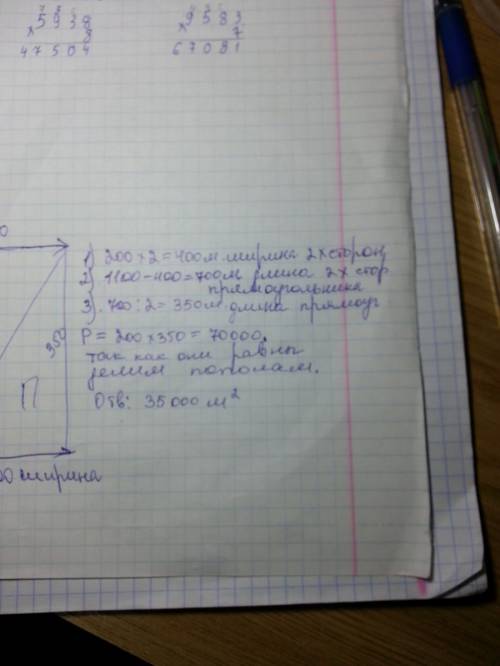 5938
× 8
47504
9583
× 7
67081
1) 200 х 2 = 400м ширина 2х сторон
2) 1100 - 400 = 700м длина 2х стор
прямоугольника
3) 700 : 2 = 350м длина прямоуг
P = 200 х 350 = 70000.
так как они равны
делим пополам.
Отв: 35000 м²
350
П
00 ширина